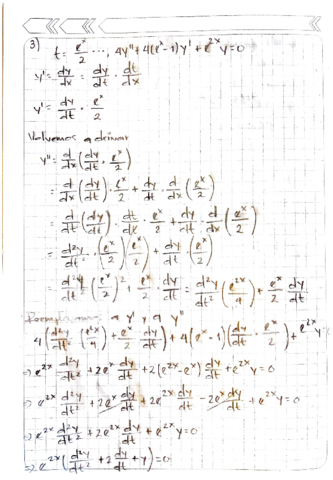 3) t = e^x/2 ..., 4y'' + 4(e^x - 1)y' + e^{2x} y = 0
y' = dy/dx = dy/dt · dt/dx
y' = dy/dt · e^x/2
Volvemos a derivar
y'' = d/dx (dy/dt · e^x/2)
= d/dx (dy/dt) · e^x/2 + dy/dt · d/dx (e^x/2)
= d/dt (dy/dt) · dt/dx · e^x/2 + dy/dt · d/dx (e^x/2)
= d²y/dt² · (e^x/2)(e^x/2) + dy/dt · (e^x/2)
= d²y/dt² (e^x/2)² + e^x/2 dy/dt = d²y/dt² (e^{2x}/4) + e^x/2 dy/dt
a y' y a y''
4(d²y/dt² · (e^{2x}/4) + e^x/2 · dy/dt) + 4(e^x - 1)(dy/dt · e^x/2) + e^{2x} y =
⇒ e^{2x} d²y/dt² + 2e^x dy/dt + 2(e^{2x} - e^x) dy/dt + e^{2x} y = 0
⇒ e^{2x} d²y/dt² + 2e^x dy/dt + 2e^{2x} dy/dt - 2e^x dy/dt + e^{2x} y = 0
⇒ e^{2x} d²y/dt² + 2e^{2x} dy/dt + e^{2x} y = 0
⇒ e^{2x} (d²y/dt² + 2 dy/dt + y) = 0